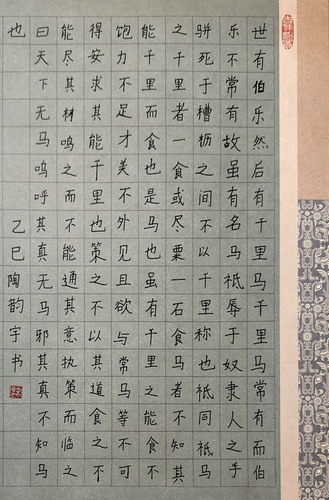 世有伯乐然后有千里马千里马常有而伯
乐不常有故虽有名马祗辱于奴隶人之手
骈死于槽枥之间不以千里称也祗同祗马
之千里者一食或尽粟一石食马者不知其
能千里而食也是马也虽有千里之能食不
饱力不足才美不外见且欲与常马等不可
得安求其能千里也策之不以其道食之不
能尽其材鸣之而不能通其意执策而临之
曰天下无马呜呼其真无马邪其真不知马
也
乙巳陶韵宇书